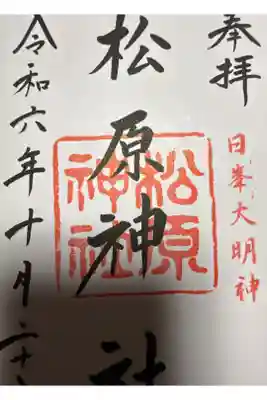 奉拝
日峯大明神
松原神社
松原
神社
令和六年十月二十